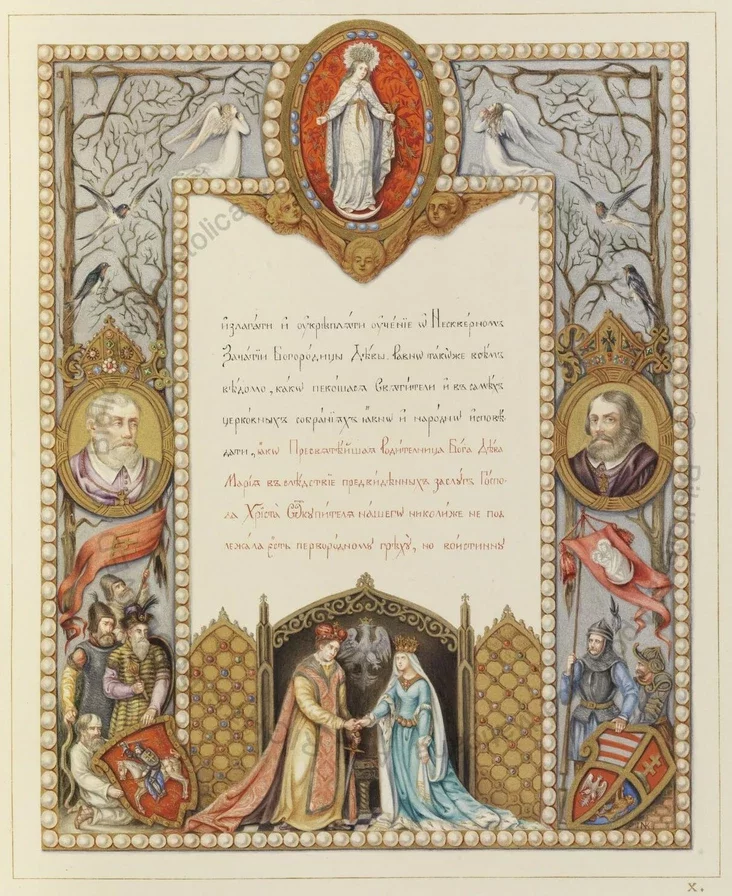 и҆злага́ти и҆ оу҆крѣплѧ́ти оу҆че́нїе ѡ҆ Нескве́рномъ
Зача́тїи Богоро́дицы Дѣ́вы. Ра́внѡ та́кѡже всѣ́мъ
вѣ́домо, ка́кѡ Свѧти́тели и҆ въ са́мѣхъ
церко́вныхъ собра́нїѧхъ ꙗ҆́внѡ и҆ наро́днѡ и҆сповѣ́
дати, ꙗ҆́кѡ Пресвѧтѣ́йшаѧ Роди́телница Бо́га Дѣ́ва
Марі́ѧ въ слѣ́дствїе предви́дѣнныхъ заслу́гъ Го́спо-
да Хрїста̀ на́шегѡ николи́же не под
лежа́ла є҆́сть первордномꙋ грѣхꙋ̀, но вои́стиннꙋ
X.